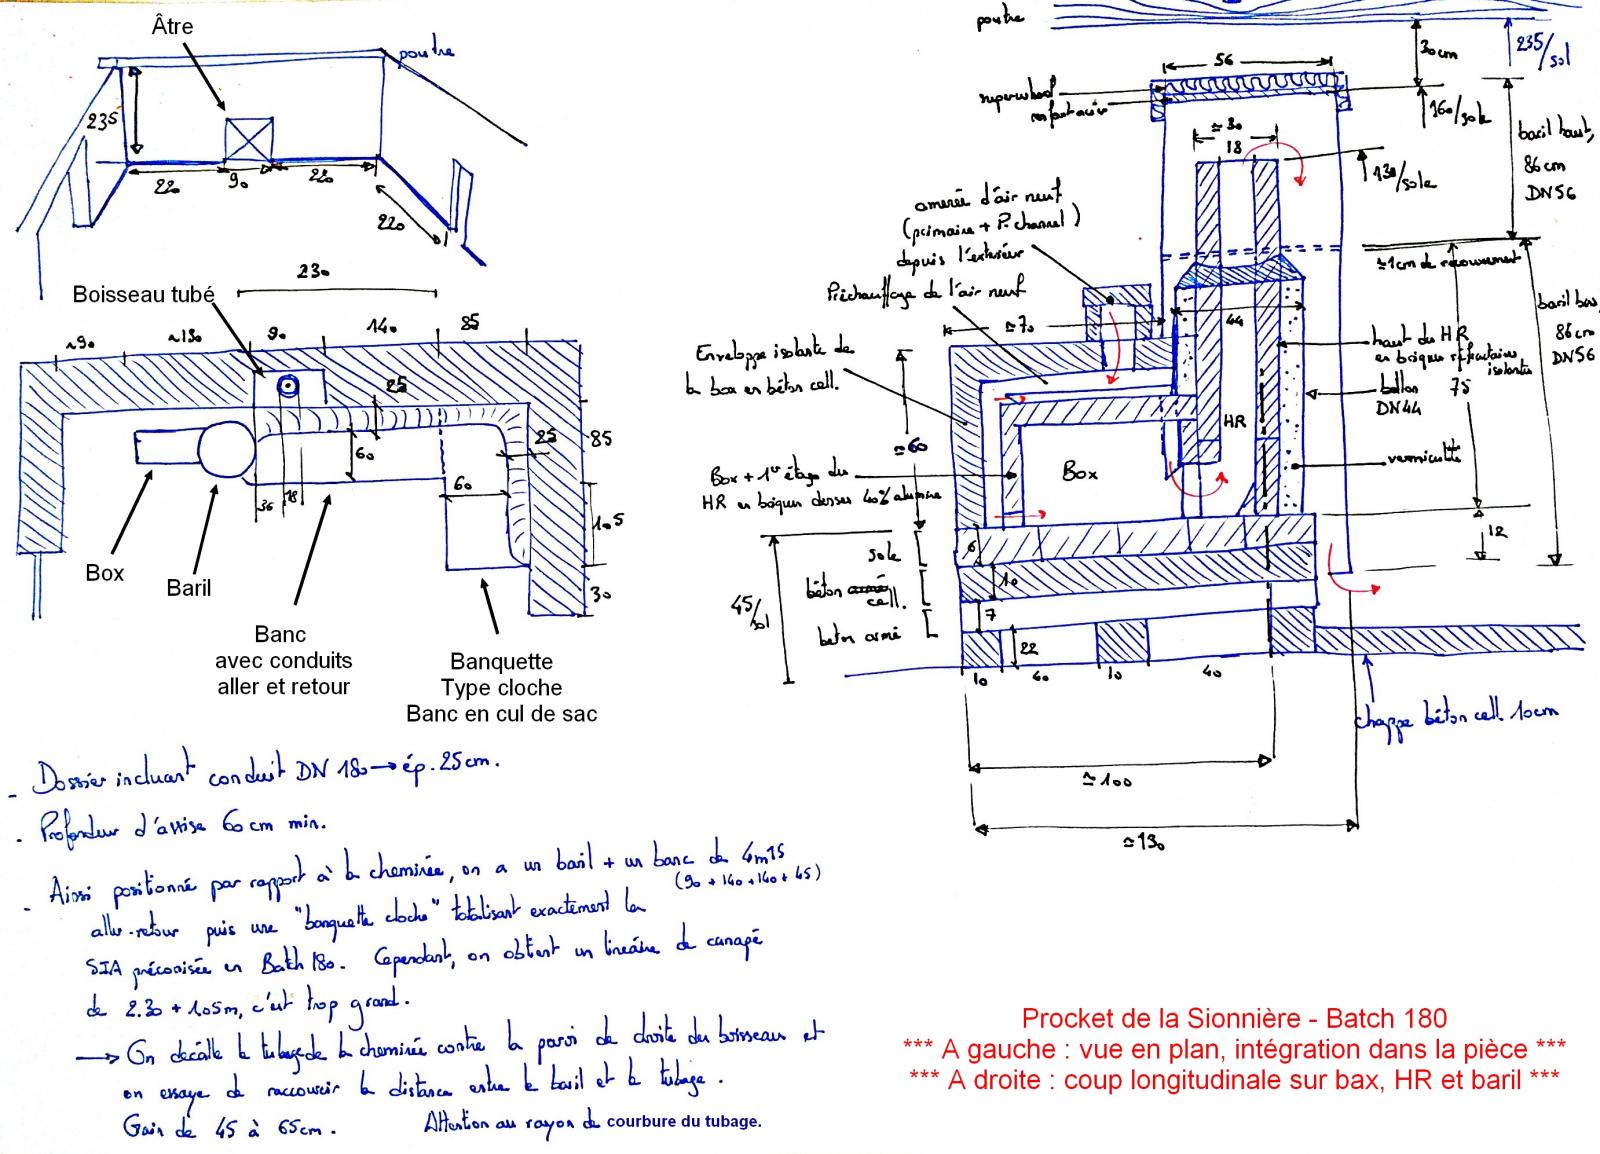 Âtre
poutre
235
220
90
220
220
230
Boisseau tubé
~90
~130
90
140
85
25
60
25
60
36
18
85
105
30
Box
Baril
Banc
avec conduits
aller et retour
Banquette
Type cloche
Banc en cul de sac
- Dossier incluant conduit DN 180 → ép. 25cm.
- Profondeur d'assise 60 cm min.
- Ainsi positionné par rapport à la cheminée, on a un baril + un banc de 4m15
(90 + 140 + 140 + 45)
aller-retour puis une "banquette cloche" totalisant exactement la
SIA préconisée en Batch 180. Cependant, on obtient un linéaire de canapé
de 2.30 + 1.05m, c'est trop grand.
→ On décalle le tubage de la cheminée contre la paroi de droite du boisseau et
on essaye de raccourcir la distance entre le baril et le tubage.
Gain de 45 à 65cm. Attention au rayon de courbure du tubage.
poutre
30cm
235/sol
56
superwool
refractaire
160/sole
baril haut,
86cm
DN56
≃30
18
130/sole
amenée d'air neuf
(primaire + P. channel)
depuis l'extérieur
Préchauffage de l'air neuf
≃1cm de recouvrement
≃70
44
baril bas,
86cm
DN56
Enveloppe isolante de
la box en béton cell.
haut du HR
en briques réfractaires
isolantes
75
ballon
DN44
HR
≃60
Box
vermiculite
Box + 1er étage du
HR en briques denses 40% alumine
12
6
sole
10
béton armé
cell.
7
béton armé
45/sol
22
10
40
10
40
chappe béton cell. 10cm
≃100
≃130
Procket de la Sionnière - Batch 180
*** A gauche : vue en plan, intégration dans la pièce ***
*** A droite : coup longitudinale sur bax, HR et baril ***